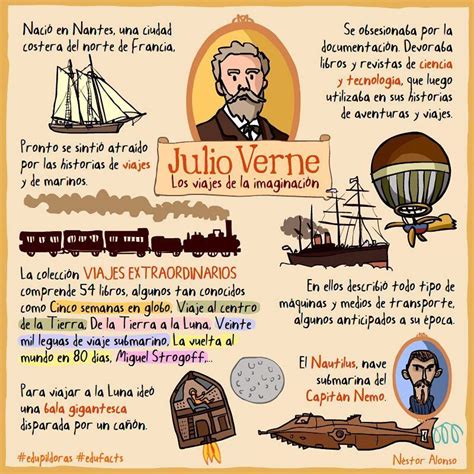 Nació en Nantes, una ciudad
costera del norte de Francia.
Se obsesionaba por la
documentación. Devoraba
libros y revistas de ciencia
y tecnología, que luego
utilizaba en sus historias
de aventuras y viajes.
Julio Verne
Los viajes de la imaginación
Pronto se sintió atraído
por las historias de viajes
y de marinos.
La colección VIAJES EXTRAORDINARIOS
comprende 54 libros, algunos tan conocidos
como Cinco semanas en globo, Viaje al centro
de la Tierra, De la Tierra a la Luna, Veinte
mil leguas de viaje submarino, La vuelta al
mundo en 80 días, Miguel Strogoff,...
En ellos describió todo tipo de
máquinas y medios de transporte,
algunos anticipados a su época.
El Nautilus, nave
submarina del
Capitán Nemo.
Para viajar a la Luna ideó
una bala gigantesca
disparada por un cañón.
#edupildoras #edufacts
Néstor Alonso